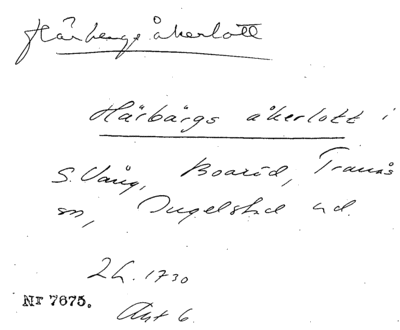 Härbergs åkerlott
Härbärgs åkerlott i
S. Vång, Boarid, Tranås
sn, Ingelstad hd.
Lh. 1730
Nr 7675. Akt 6.